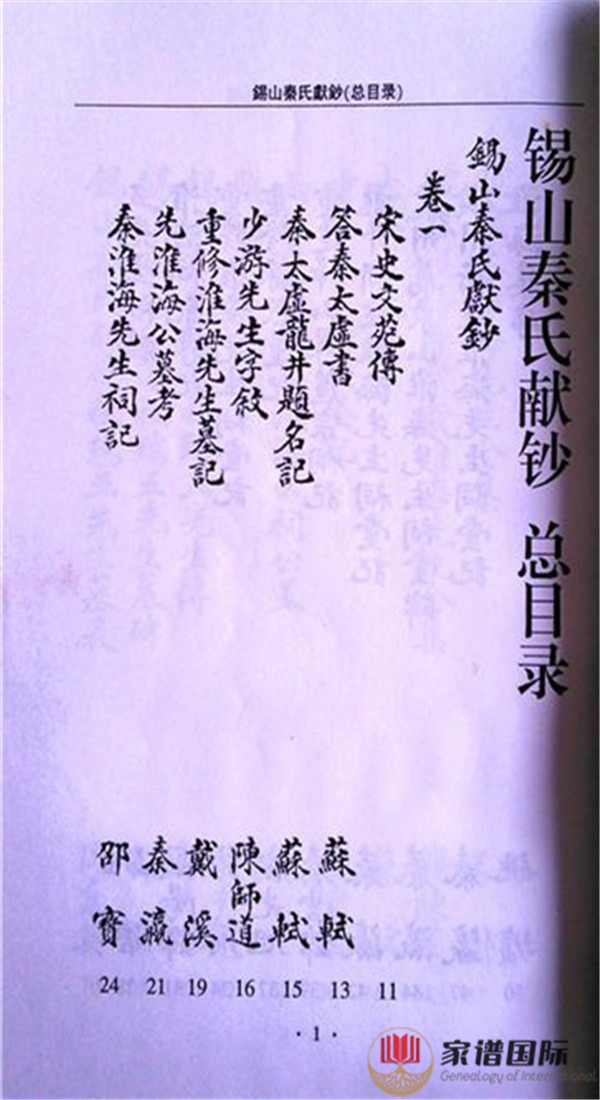 錫山秦氏獻鈔(总目录)
锡山秦氏献钞 总目录
錫山秦氏獻鈔
卷一
宋史文苑傳 11
答秦太虛書 蘇軾 13
秦太虛龍井題名記 蘇軾 15
少游先生字敘 陳師道 16
重修淮海先生墓記 戴溪 19
先淮海公墓考 秦瀛 21
秦淮海先生祠記 邵寶 24
·1·
家谱国际
Genealogy of International